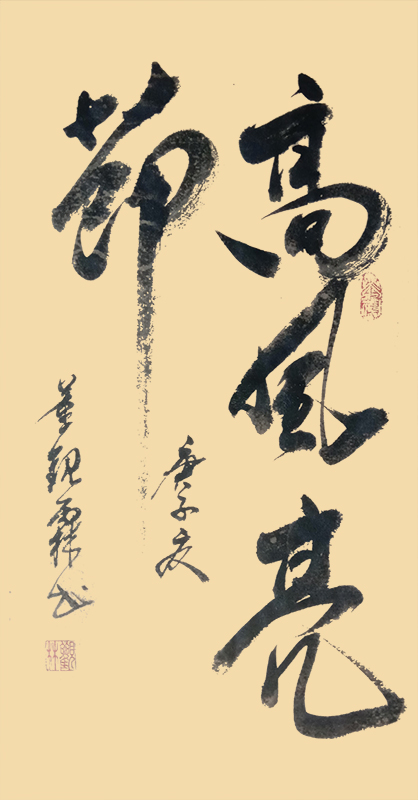 高風亮
節
庚子夏
董觀霖书